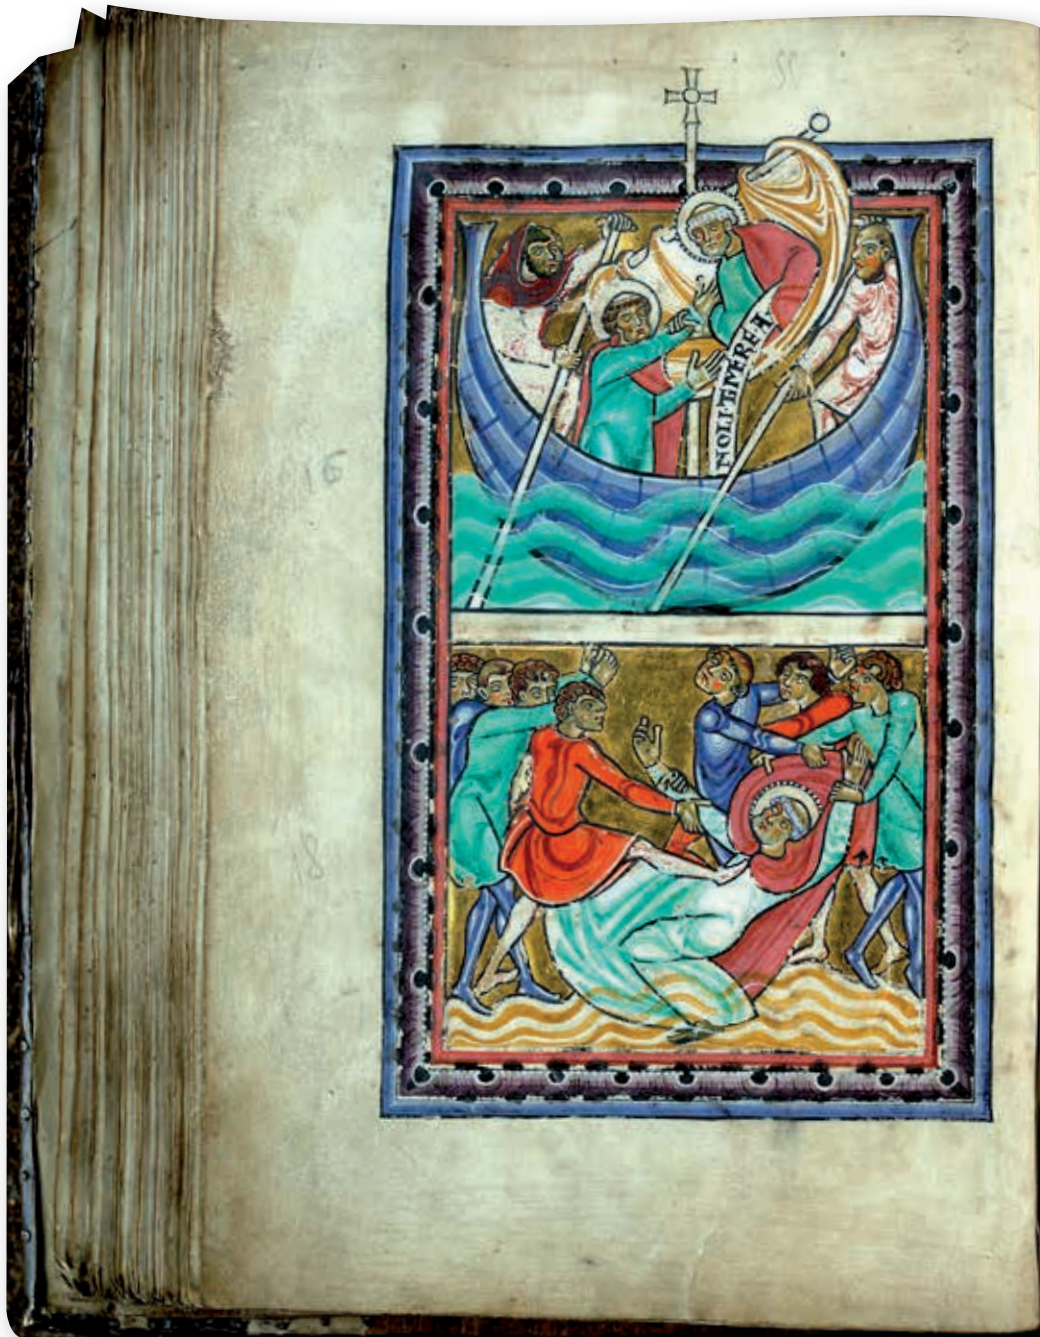 NOLI TIMERE A
16
18